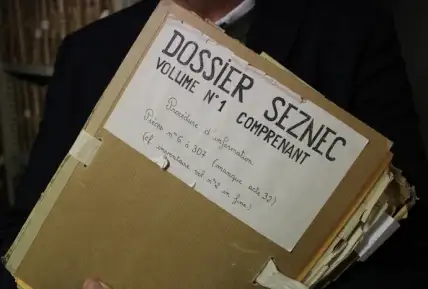 DOSSIER SEZNEC
VOLUME N°1 COMPRENANT
Procédure d'information
Pièces n°6 à 307 (manque acte 32)
(cf inventaire col n°2 in fine)